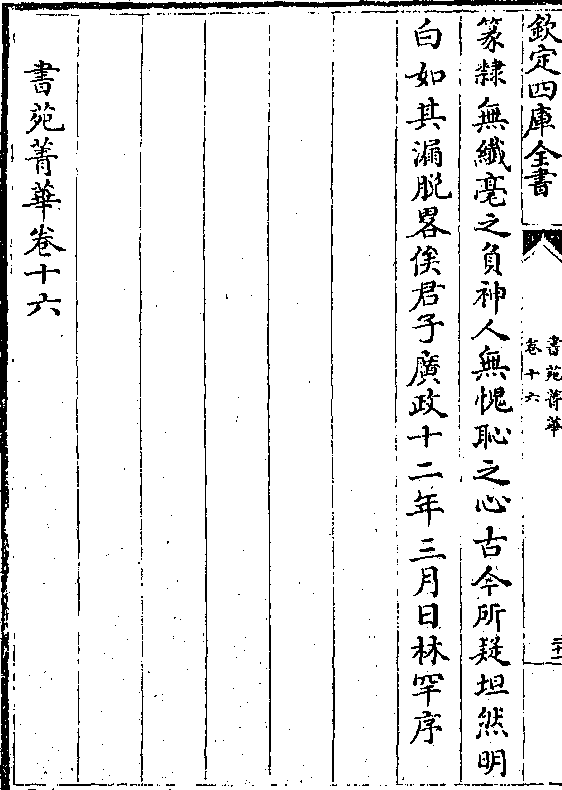 欽定四庫全書
書苑菁華
卷十六
篆隸無纖毫之負神人無愧恥之心古今所疑坦然明
白如其漏脱畧俟君子廣政十二年三月日林罕序
書苑菁華卷十六